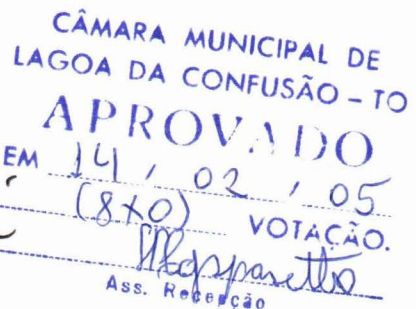 CÂMARA MUNICIPAL DE
LAGOA DA CONFUSÃO - TO
APROVADO
EM 14 / 02 / 05
(8x0) VOTAÇÃO.
Ass. Recepção